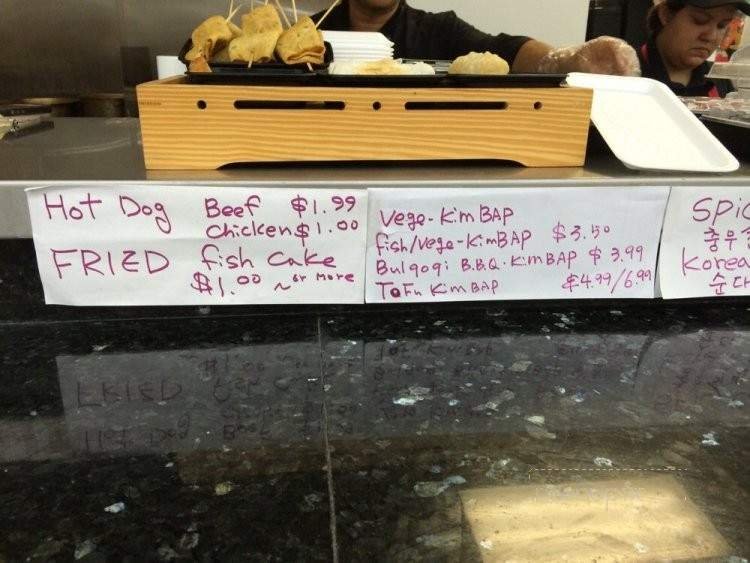 Hot Dog Beef $1.99
Chicken $1.00
FRIED fish cake
$1.00 ~ or more
Vege-KimBAP
fish/vege-KimBAP $3.50
Bulgogi B.B.Q.KimBAP $3.99
ToFu KimBAP $4.99/6.99
Spic
충무
Korea
순대